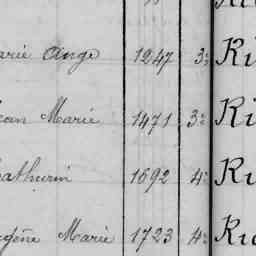 arie Ange 1247 3e Ri
ean Marie 1471 3e Ri
athurin 1692 4e Ri
ugène Marie 1723 4e Ri